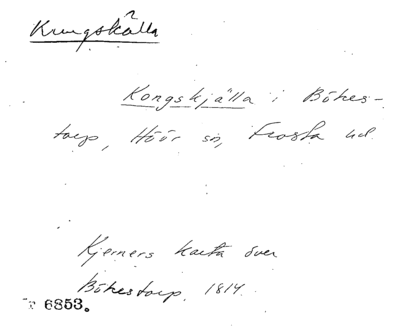 Kungskälla
Kongskjälla i Bökes-
torp, Höör sn, Frosta hd.
Kjerners karta över
Bökestorp. 1814.
6853.